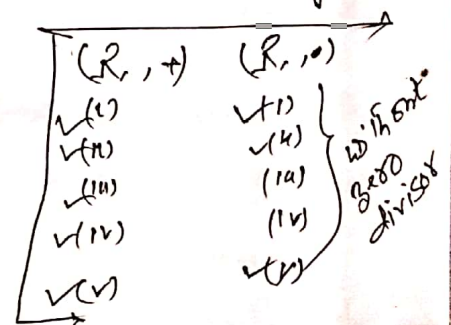 (R, , +) (R, , •)
✓(i) ✓(i)
✓(ii) ✓(ii)
✓(iii) (iii)
✓(iv) (iv)
✓(v) ✓(v)
without
zero
divisor